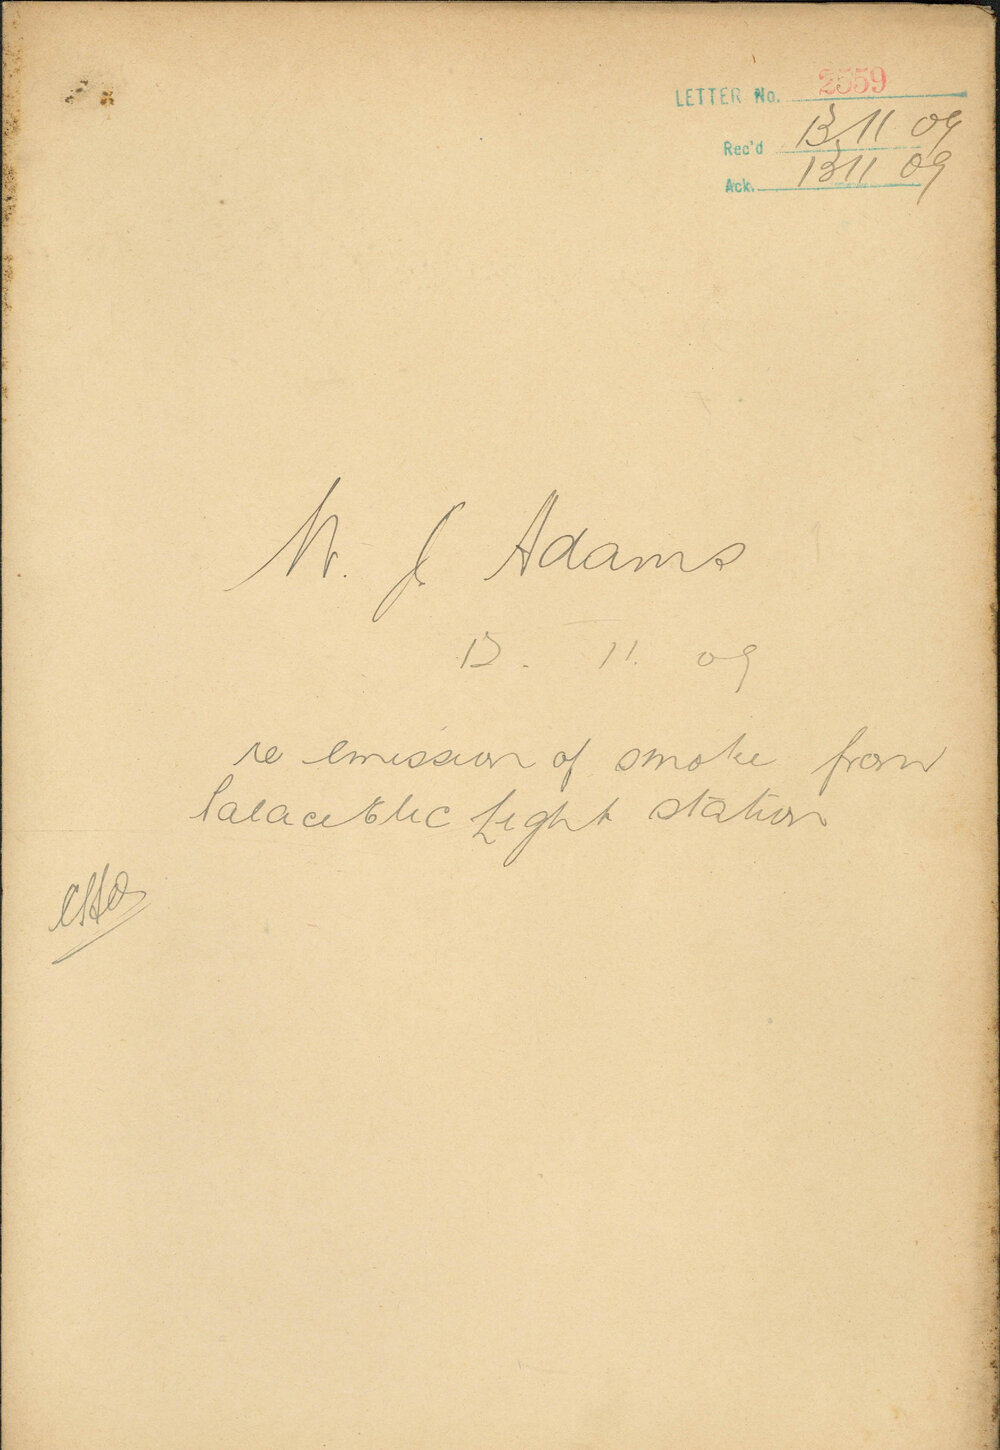 LETTER No. 2559
Rec'd 13 11 09
Ack. 13 11 09
J. Adams
13. 11. 09
re emission of smoke from
Palace Elec Light station